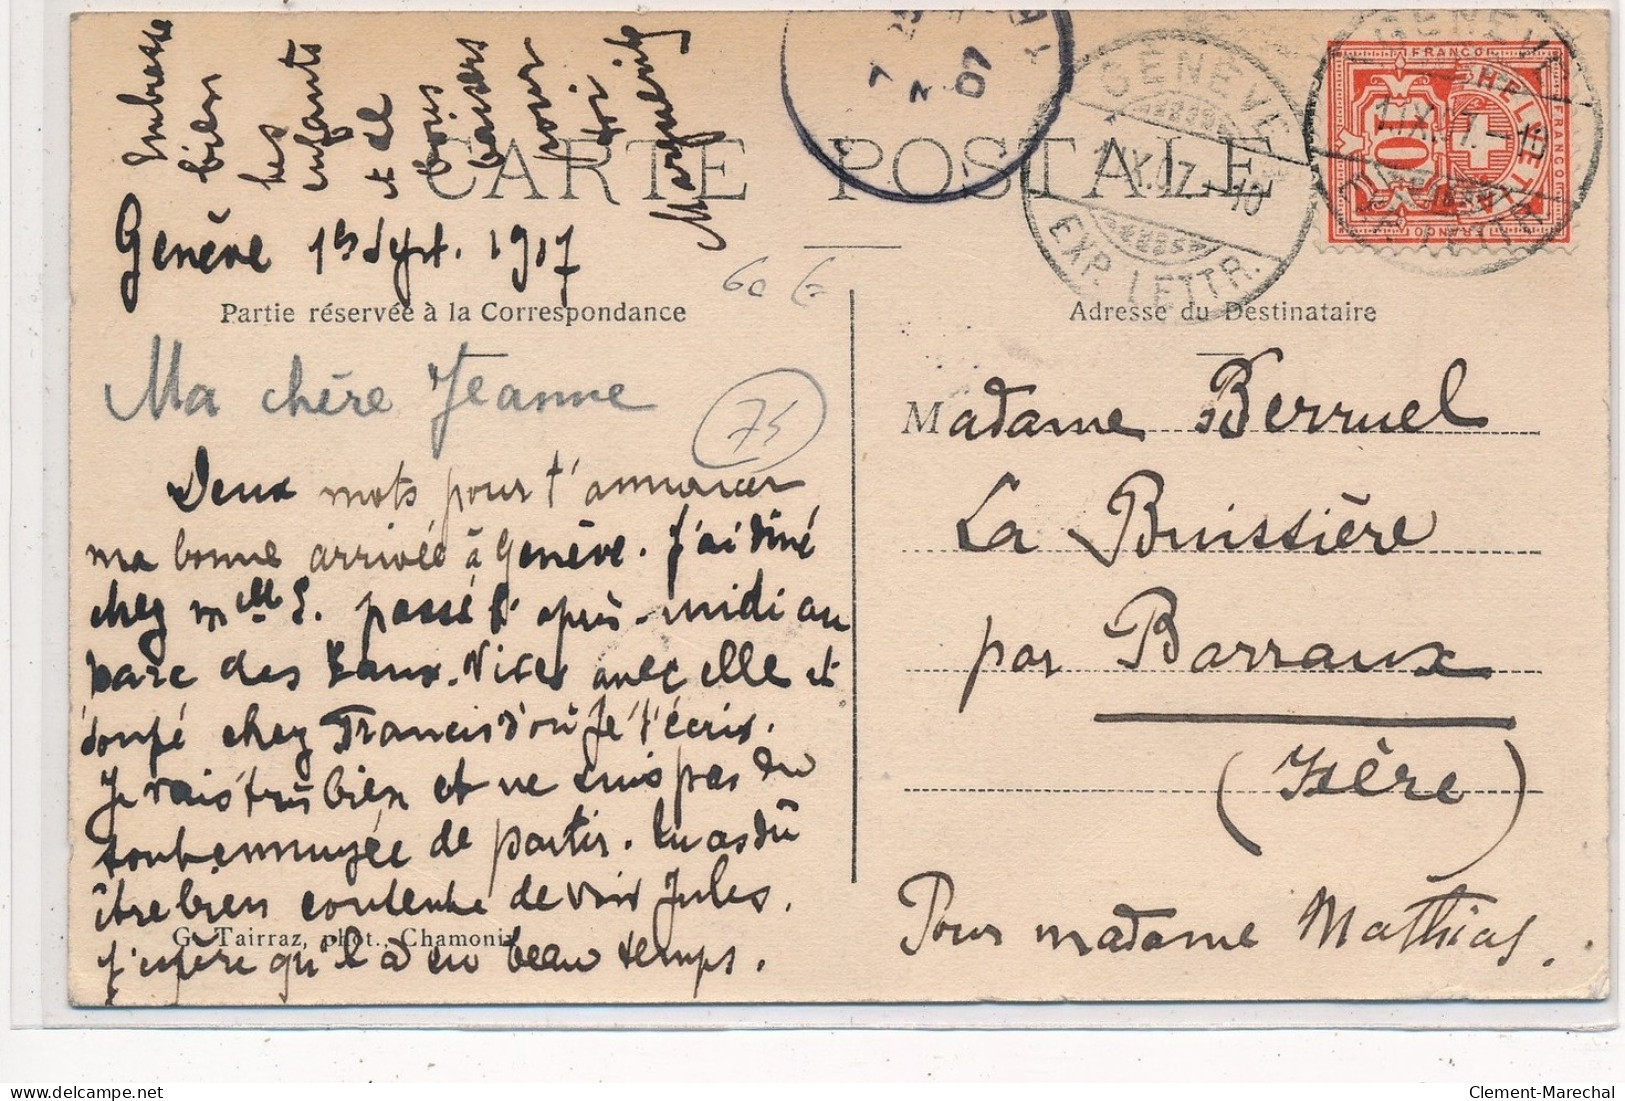 Embrasse
bien
les
enfants
et de
bons
baisers
pour
toi
Marguerite
CARTE POSTALE
Genève 1er Sept. 1907
Partie réservée à la Correspondance
Ma chère Jeanne
Deux mots pour t'annoncer
ma bonne arrivée à Genève. J'ai dîné
chez melle S. passé l'après-midi au
parc des Eaux-Vives avec elle et
soupé chez Francis d'où je t'écris.
Je vais très bien et ne suis pas du
tout ennuyée de partir. Tu as dû
être bien contente de voir Jules.
J'espère qu'il a eu beau temps.
G. Tairraz, phot., Chamonix
60 E
75
07
GENÈVE
1.IX.07.-10
EXP. LETTR.
GENÈVE
1.IX.07.-10
EXP. LETTR.
FRANCO
HELVETIA
10
FRANCO
Adresse du Destinataire
Madame Berruel
La Buissière
par Barraux
(Isère)
Pour madame Mathias.
Clement-Marechal